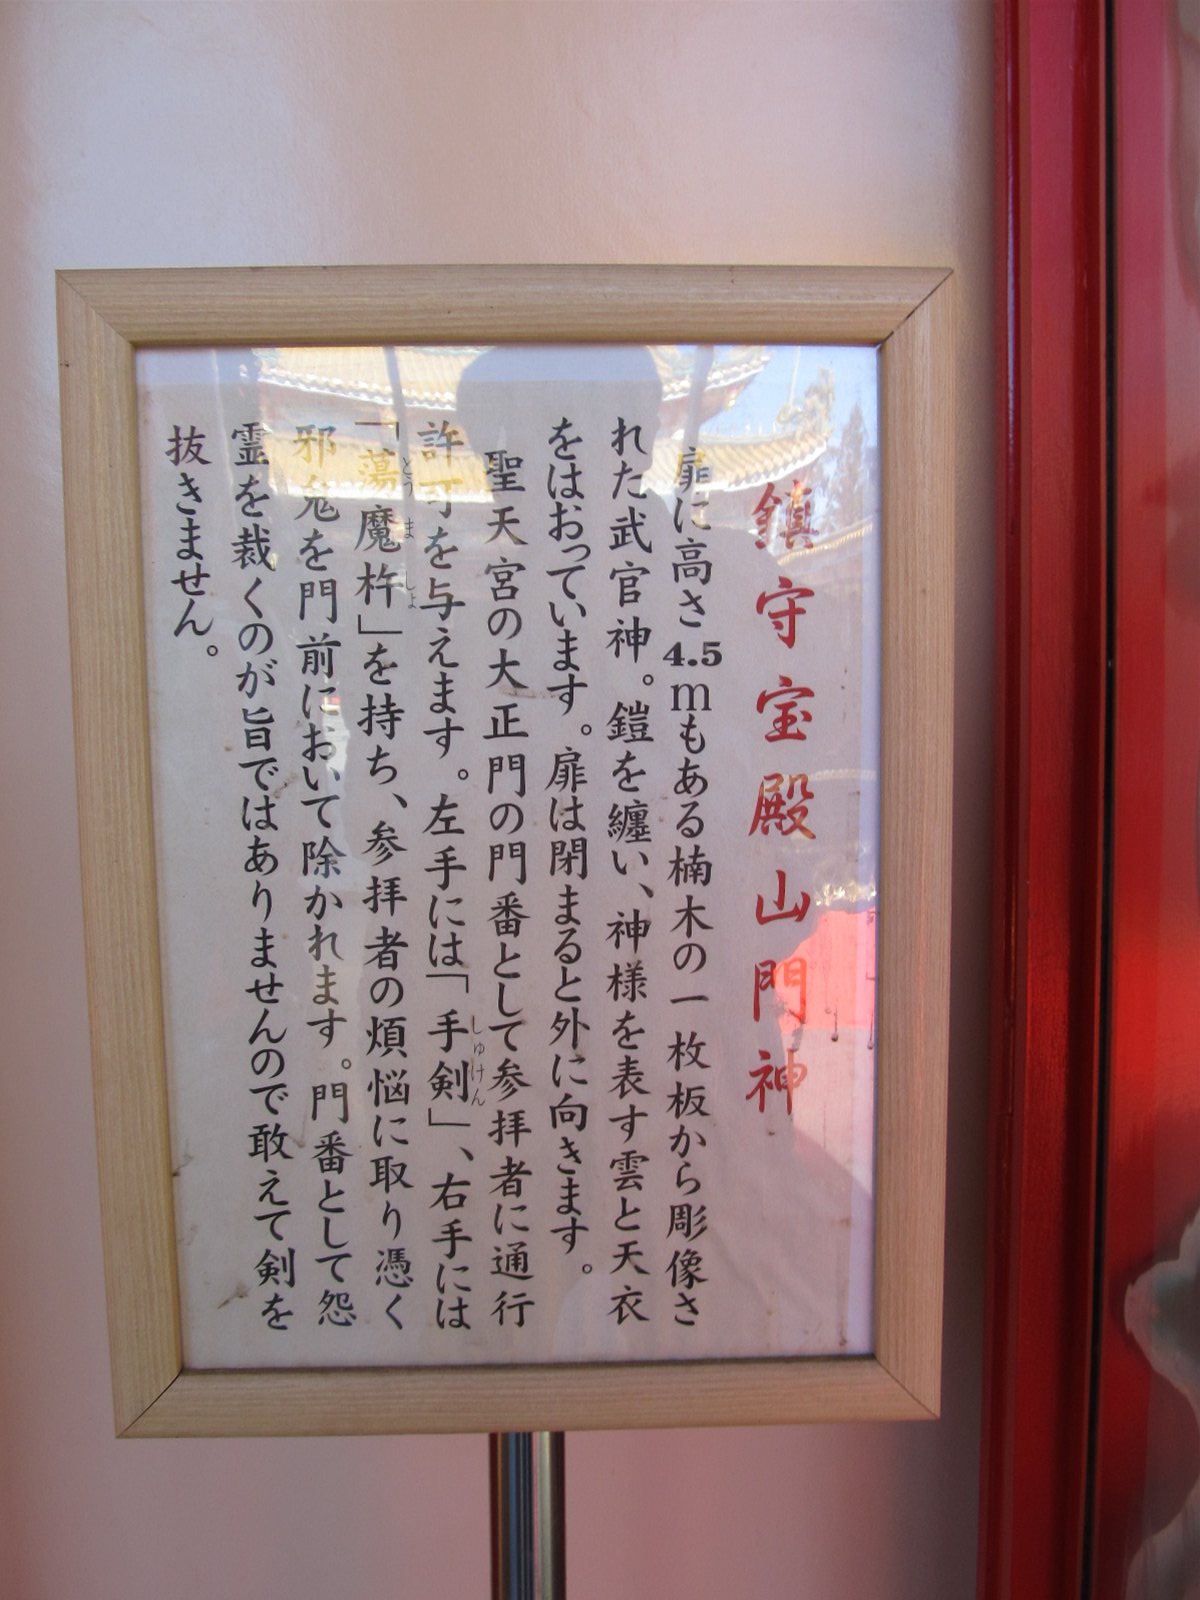 鎮守宝殿山門神
扉に高さ4.5mもある楠木の一枚板から彫像さ
れた武官神。鎧を纏い、神様を表す雲と天衣
をはおっています。扉は閉まると外に向きます。
聖天宮の大正門の門番として参拝者に通行
許可を与えます。左手には「手剣」、右手には
しゅけん
「蕩魔杵」を持ち、参拝者の煩悩に取り憑く
とうましょ
邪鬼を門前において除かれます。門番として怨
霊を裁くのが旨ではありませんので敢えて剣を
抜きません。